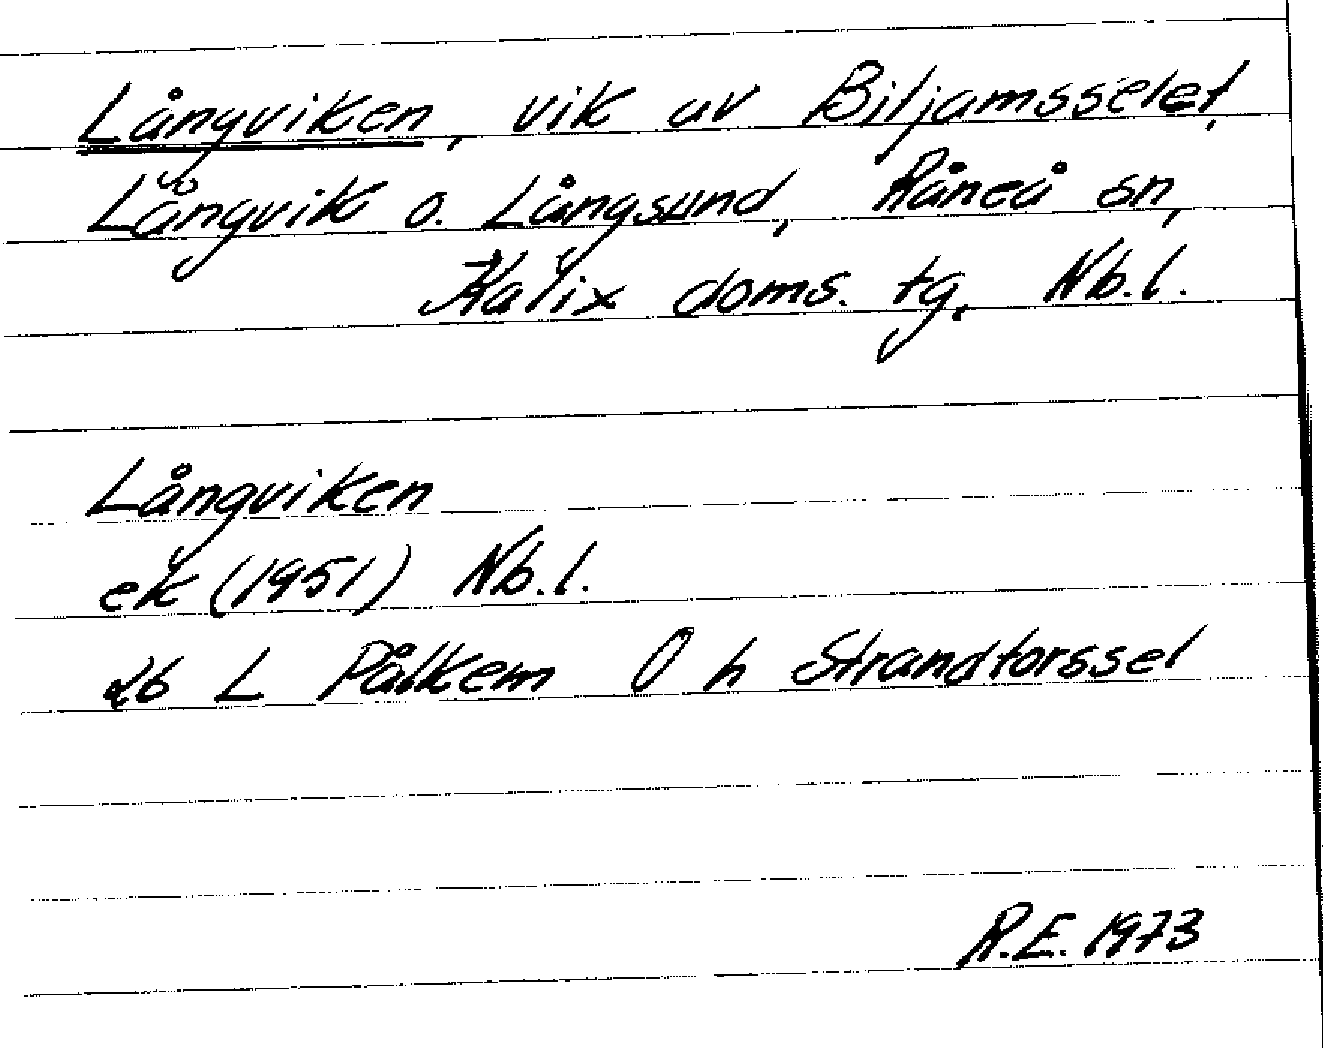 Långviken, vik av Biljamsselet,
Långvik o. Långsund, Råneå sn,
Kalix doms. tg, Nb.l.
Långviken
ek (1951) Nb.l.
26 L Pålkem Ö h Strandforssel
R.E. 1973